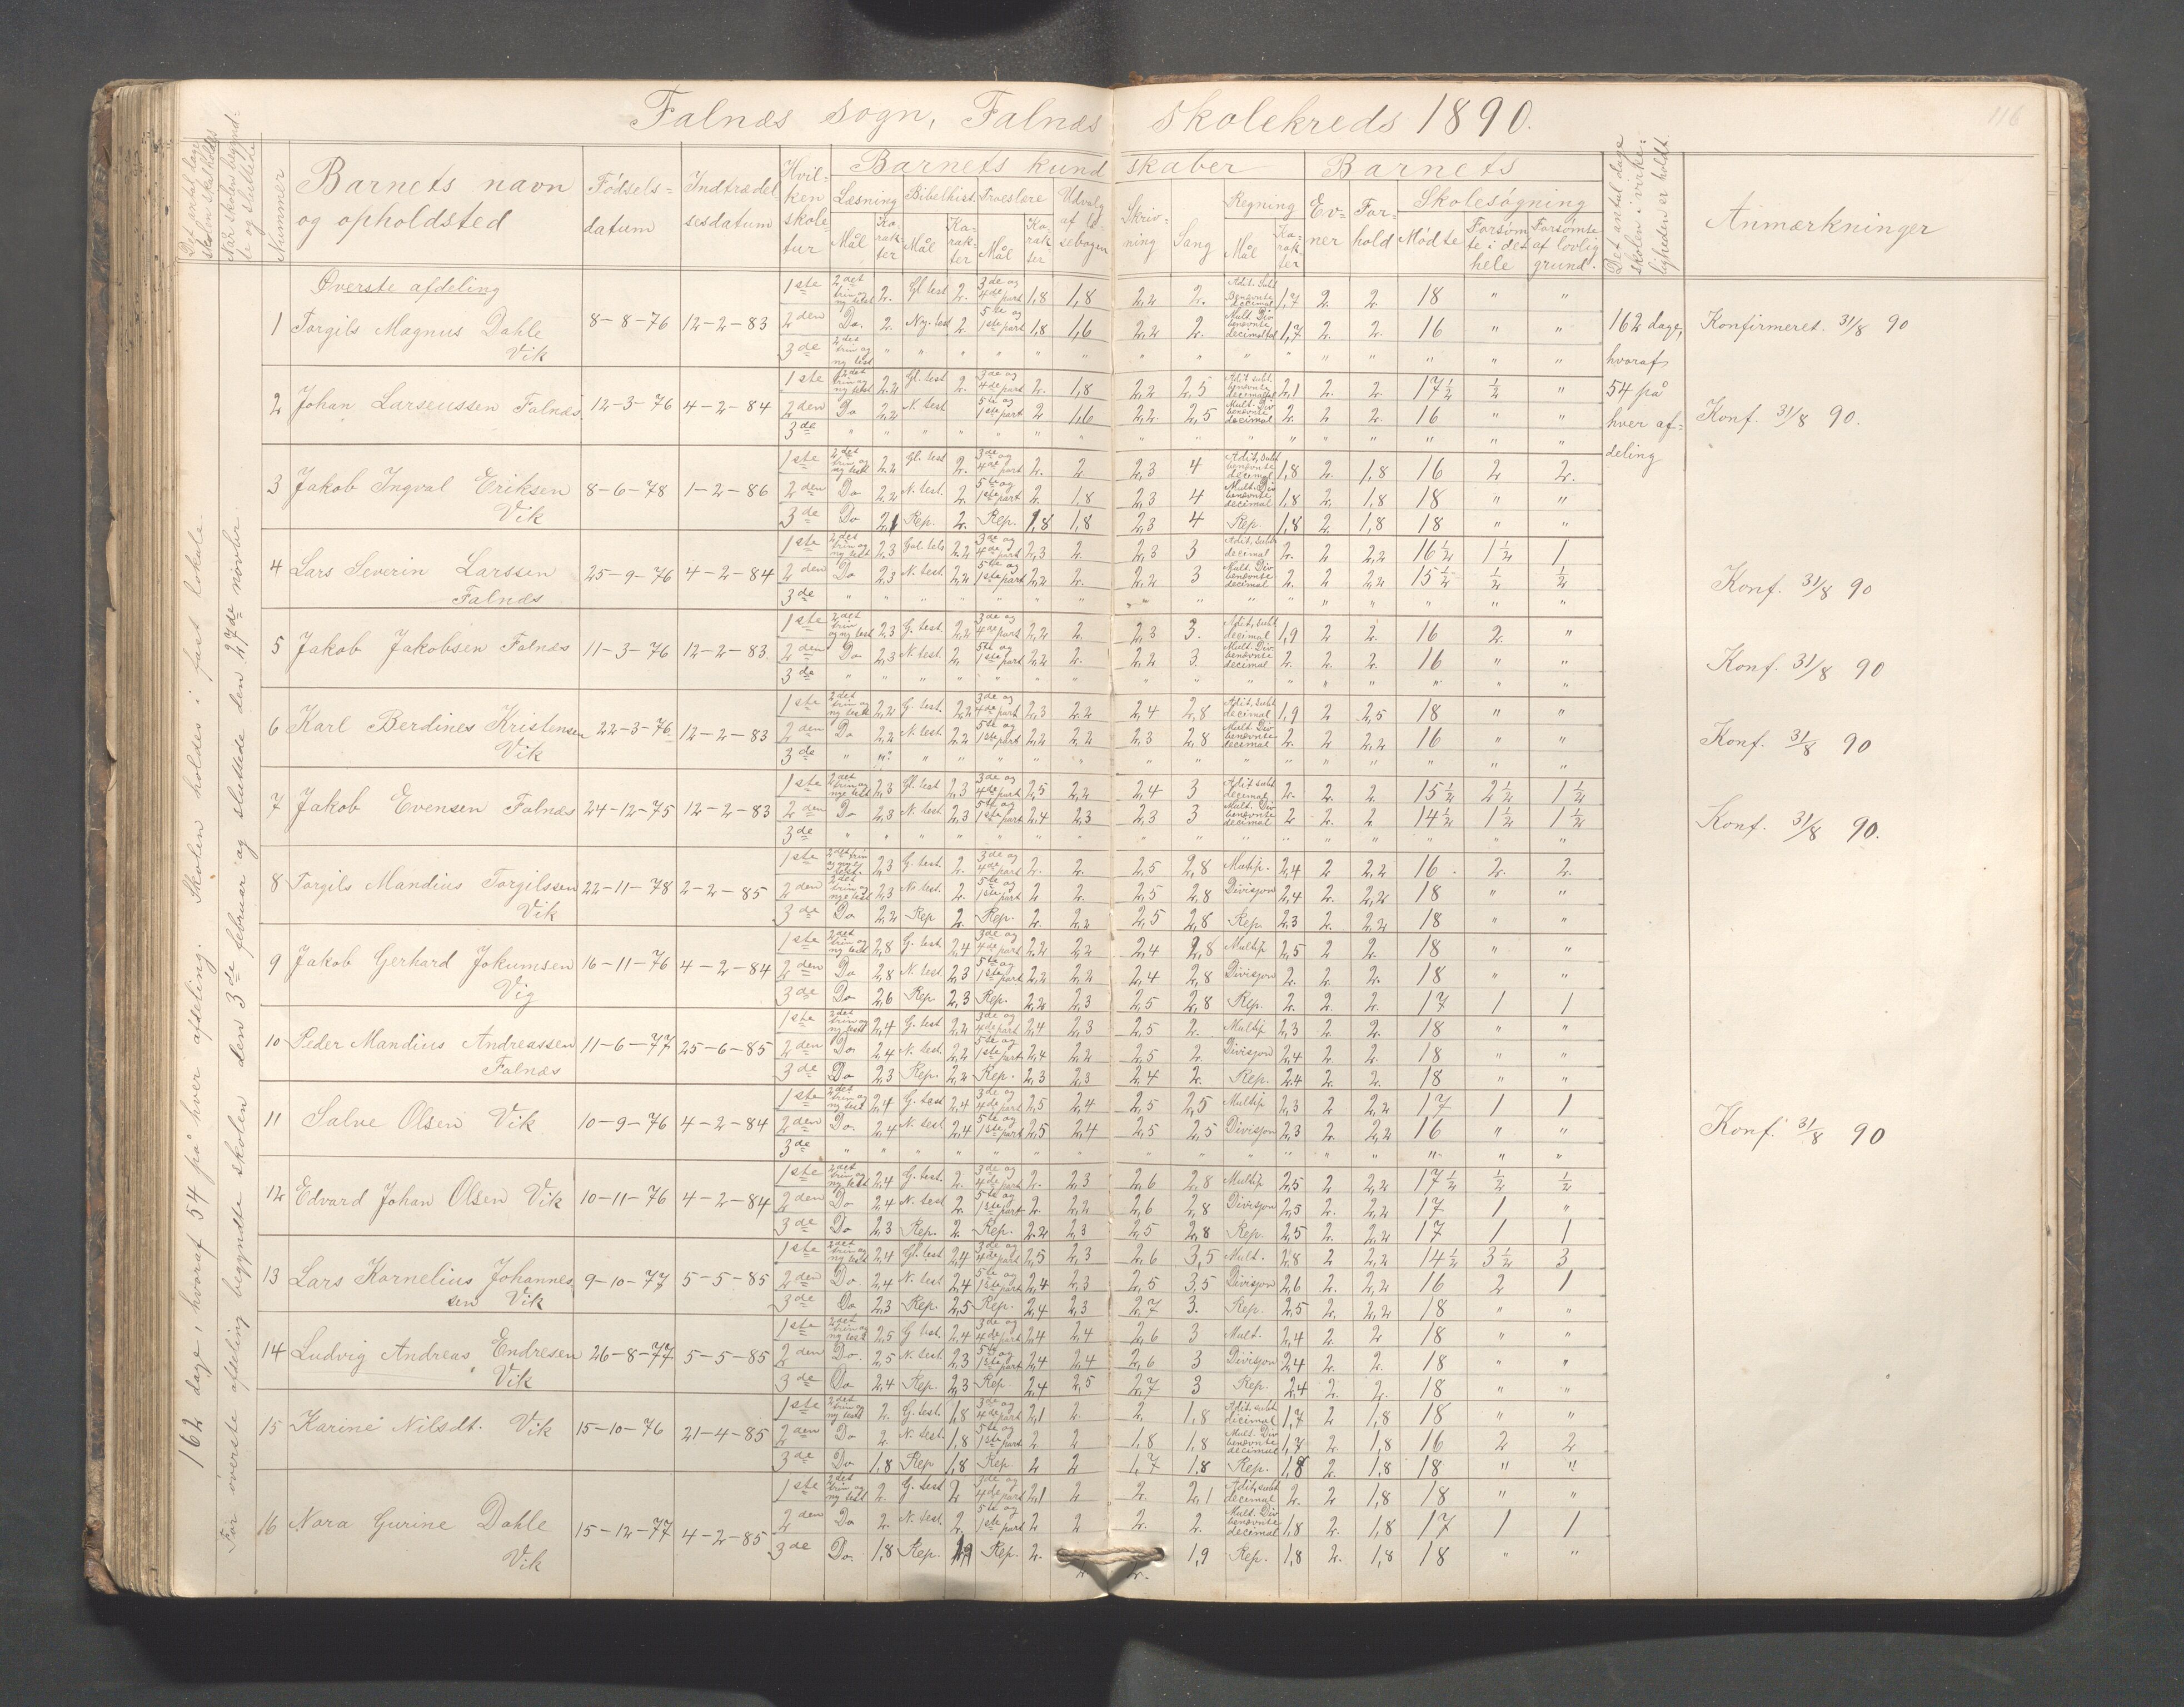 Falnæs sogn, Falnæs skolekreds 1890.
116
Det antal dage skolen skal holdes
Når skolen begyndte og sluttede
Nummer
Barnets navn og opholdsted
Fødselsdatum
Indtrædelsesdatum
Hvilken skoletur
Barnets kundskaber
Læsning Mål Karakter
Bibelhist. Mål Karakter
Troeslære Mål Karakter
Udvalg af læsebogen
Skrivning
Sang
Regning Mål Karakter
Barnets
Evner
Forhold
Skolesøgning
Mødte
Forsømte i det hele
Forsømte af lovlig grund.
Det antal dage skolen i virkeligheden er holdt.
Anmærkninger
162 dage, hvoraf 54 på hver afdeling. Skolen holdes i fast lokale.
For øverste afdeling begyndte skolen den 3de februar og sluttede den 27de novbr.
Øverste afdeling
1 Torgils Magnus Dahle Vik 8-8-76 12-2-83
1ste 2det trin og ny test 2. Gl. test 2. 3de og 4de part 1,8 1,8 2,2 2. Adit. Subt Benævnte decimal 1,7 2. 2. 18 " "
2den Do. 2. Ny. test 2. 5te og 1ste part 1,8 1,6 2,2 2. Mult. Div benævnte decimal 1,7 2. 2. 16 " "
3de 2det trin og ny test " " " " " " " " " " " " " " "
162 dage, hvoraf 54 på hver afdeling
Konfirmeret. 31/8 90
2 Johan Larseussen Falnæs. 12-3-76 4-2-84
1ste 2det trin og ny test 2,2 Gl. test 2. 3de og 4de part 2. 1,8 2,2 2,5 Adit subt. benævnte decimal 2,1 2. 2. 17 1/2 1/2 "
2den Do 2,2 N. test 5te og 1ste part 2 1,6 2,2 2,5 Mult. Div benævnte decimal 2. 2 2. 16 " "
3de " " " " " " " " " " " " " " " "
Konf. 31/8 90.
3 Jakob Ingval Eriksen Vik 8-6-78 1-2-86
1ste 2det trin og ny test 2,2 Gl. test 2. 3de og 4de part 2. 2. 2,3 4 Adit, subt benævnte decimal 1,8 2. 1,8 16 2 2.
2den Do 2,2 N. test. 2. 5te og 1ste part 2. 1,8 2,3 4 Mult. Div benævnte decimal 1,8 2. 1,8 18 " "
3de Do 2,1 Rep. 2. Rep. 1,8 1,8 2,3 4 Rep. 1,8 2. 1,8 18 " "
4 Lars Severin Larssen Falnæs 25-9-76 4-2-84
1ste 2det trin og ny test 2,3 2,2 3de og 4de part 2,3 2. 2,3 3 Adit, subt decimal 2. 2 2,2 16 1/2 1 1/2 1
2den Do 2,3 N. test. 2,2 5te og 1ste part 2,2 2. 2,2 3 Mult. Div benævnte decimal 2. 2 2,2 15 1/2 1/2 1/2
3de " " " " " " " " " " " " " " " "
Konf. 31/8 90
5 Jakob Jakobsen Falnæs 11-3-76 12-2-83.
1ste 2det trin og ny test 2,3 G. test. 2,2 3de og 4de part 2,2 2. 2,3 3. Adit, subt decimal 1,9 2 2. 16 2. "
2den Do 2,3 N. test. 2. 5te og 1ste part 2,2 2. 2,2 3. Mult. Div. benævnte decimal 2. 2. 2. 16 " "
3de " " " " " " " " " " " " " " " "
Konf. 31/8 90
6 Karl Berdines Kristensen Vik 22-3-76 12-2-83
1ste 2det trin og ny test 2,2 G. test. 2,2 3de og 4de part 2,3 2,2 2,4 2,8 Adit, subt decimal 1,9 2 2,5 18 " "
2den Do 2,2 N. test 2,2 5te og 1ste part 2,2 2,2 2,3 2,8 Mult. Div benævnte decimal 2. 2 2,2 16 " "
3de " " " " " " " " " " " " " " " "
Konf. 31/8 90
7 Jakob Evensen Falnæs 24-12-75 12-2-83
1ste 2det trin og nye test 2,3 Gl. test 2,3 3de og 4de part 2,5 2,2 2,4 3 Adit subt decimal 2. 2. 2. 15 1/2 2 1/2 1 1/2
2den Do 2,3 N. test 2,3 5te og 1ste part 2,4 2,3 2,3 3 Mult. Div benævnte decimal 2 2. 2 14 1/2 1 1/2 1 1/2
3de " " " " " " " " " " " " " " " "
Konf. 31/8 90.
8 Torgils Mandius Torgilssen Vik 22-11-78 2-2-85
1ste 2det trin og nye test. 2,3 G. test. 2. 3de og 4de part 2. 2. 2,5 2,8 Multip. 2,4 2 2,2 16 2. 2.
2den 2det trin og nye test 2,3 N. test. 2. 5te og 1ste part 2 2. 2,5 2,8 Divisjon 2,4 2. 2,2 18 " "
3de Do 2,2 Rep 2. Rep. 2. 2,2 2,5 2,8 Rep. 2,3 2. 2,2 18 " "
9 Jakob Gerhard Jokumsen Vig 16-11-76 4-2-84
1ste 2det trin og ny test 2,8 G. test 2,4 3de og 4de part 2,2 2,2 2,4 2,8 Multip. 2,5 2 2. 18 " "
2den Do 2,8 N. test. 2,3 5te og 1ste part 2,2 2,2 2,4 2,8 Divisjon 2. 2. 2. 18 " "
3de Do 2,6 Rep 2,3 Rep. 2,2 2,3 2,5 2,8 Rep. 2. 2. 2. 17 1 1
10 Peder Mandius Andreassen Falnæs 11-6-77 25-6-85
1ste 2det trin og ny test 2,4 G. test 2,2 3de og 4de part 2,4 2,3 2,5 2. Multip. 2,3 2. 2. 18 " "
2den Do. 2,4 N. test. 2,2 5te og 1ste part 2,4 2,2 2,5 2. Divisjon 2,4 2. 2. 18 " "
3de Do 2,3 Rep. 2,2 Rep. 2,3 2,3 2,4 2. Rep. 2,4 2. 2. 18 " "
11 Salve Olsen Vik. 10-9-76 4-2-84
1ste 2det trin og ny test 2,4 G. test 2,4 3de og 4de part 2,5 2,4 2,5 2,5 Multip 2,3 2 2,2 17 1 1
2den Do. 2,4 N. test 2,4 5te og 1ste part 2,5 2,4 2,5 2,5 Divisjon 2,3 2. 2,2 16 " "
3de " " " " " " " " " " " " " " " "
Konf. 31/8 90
12 Edvard Johan Olsen Vik 10-11-76 4-2-84
1ste 2det trin og ny test 2,4 G. test. 2. 3de og 4de part 2. 2,3 2,6 2,8 Multip 2,5 2 2,2 17 1/2 1/2 1/2
2den Do 2,4 N. test 2. 5te og 1ste part 2. 2,2 2,6 2,8 Divisjon 2,5 2. 2,2 17 1 "
3de Do 2,3 Rep. 2. Rep. 2,2 2,3 2,5 2,8 Rep. 2,5 2. 2,2 17 1 1
13 Lars Kornelius Johannessen Vik 9-10-77 5-5-85
1ste 2det trin og ny test 2,4 Gl. test 2,4 3de og 4de part 2,5 2,3 2,6 3,5 Mult. 2,8 2 2,2 14 1/2 3 1/2 3
2den Do. 2,4 N. test 2,4 5te og 1ste part 2,4 2,3 2,5 3,5 Divisjon 2,6 2. 2,2 16 2 1
3de Do 2,3 Rep. 2,5 Rep. 2,4 2,3 2,7 3. Rep. 2,5 2. 2,2 18 " "
14 Ludvig Andreas Endresen Vik 26-8-77 5-5-85
1ste 2det trin og ny test 2,5 G test. 2,4 3de og 4de part 2,4 2,4 2,6 3 Mult. 2,4 2 2 18 " "
2den Do. 2,5 N. test. 2,3 5te og 1ste part 2,4 2,4 2,6 3 Divisjon 2,4 2. 2. 18 " "
3de Do 2,4 Rep. 2,3 Rep. 2,4 2,5 2,7 3 Rep. 2,4 2. 2. 18 " "
15 Karine Nilsdt. Vik 15-10-76 21-4-85
1ste 2det trin og ny test 2. G. test. 1,8 3de og 4de part 2,1 2. 2. 1,8 Adit. subt decimal 1,7 2 1,8 18 " "
2den Do 2. N. test. 1,8 5te og 1ste part 2 2 1,8 1,8 Mult. Div benævnte decimal 1,7 2. 1,8 16 2 2
3de Do 1,8 Rep 1,8 Rep 2 2 1,7 1,8 Rep. 1,8 2. 1,8 18 " "
16 Nora Gurine Dahle Vik 15-12-77 4-2-85
1ste 2det trin og ny test 2. G. test 2 3de og 4de part 2,1 2 2. 2,1 Adit, subt decimal 2. 2 1,8 18 " "
2den Do 2. N. test. 2. 5te og 1ste part 2 2 2. 2. Mult. Div benævnte decimal 1,8 2. 1,8 17 1 1
3de Do. 1,8 Rep. 1,9 Rep. 2. 2. 1,9 Rep. 1,8 2. 1,8 18 " "